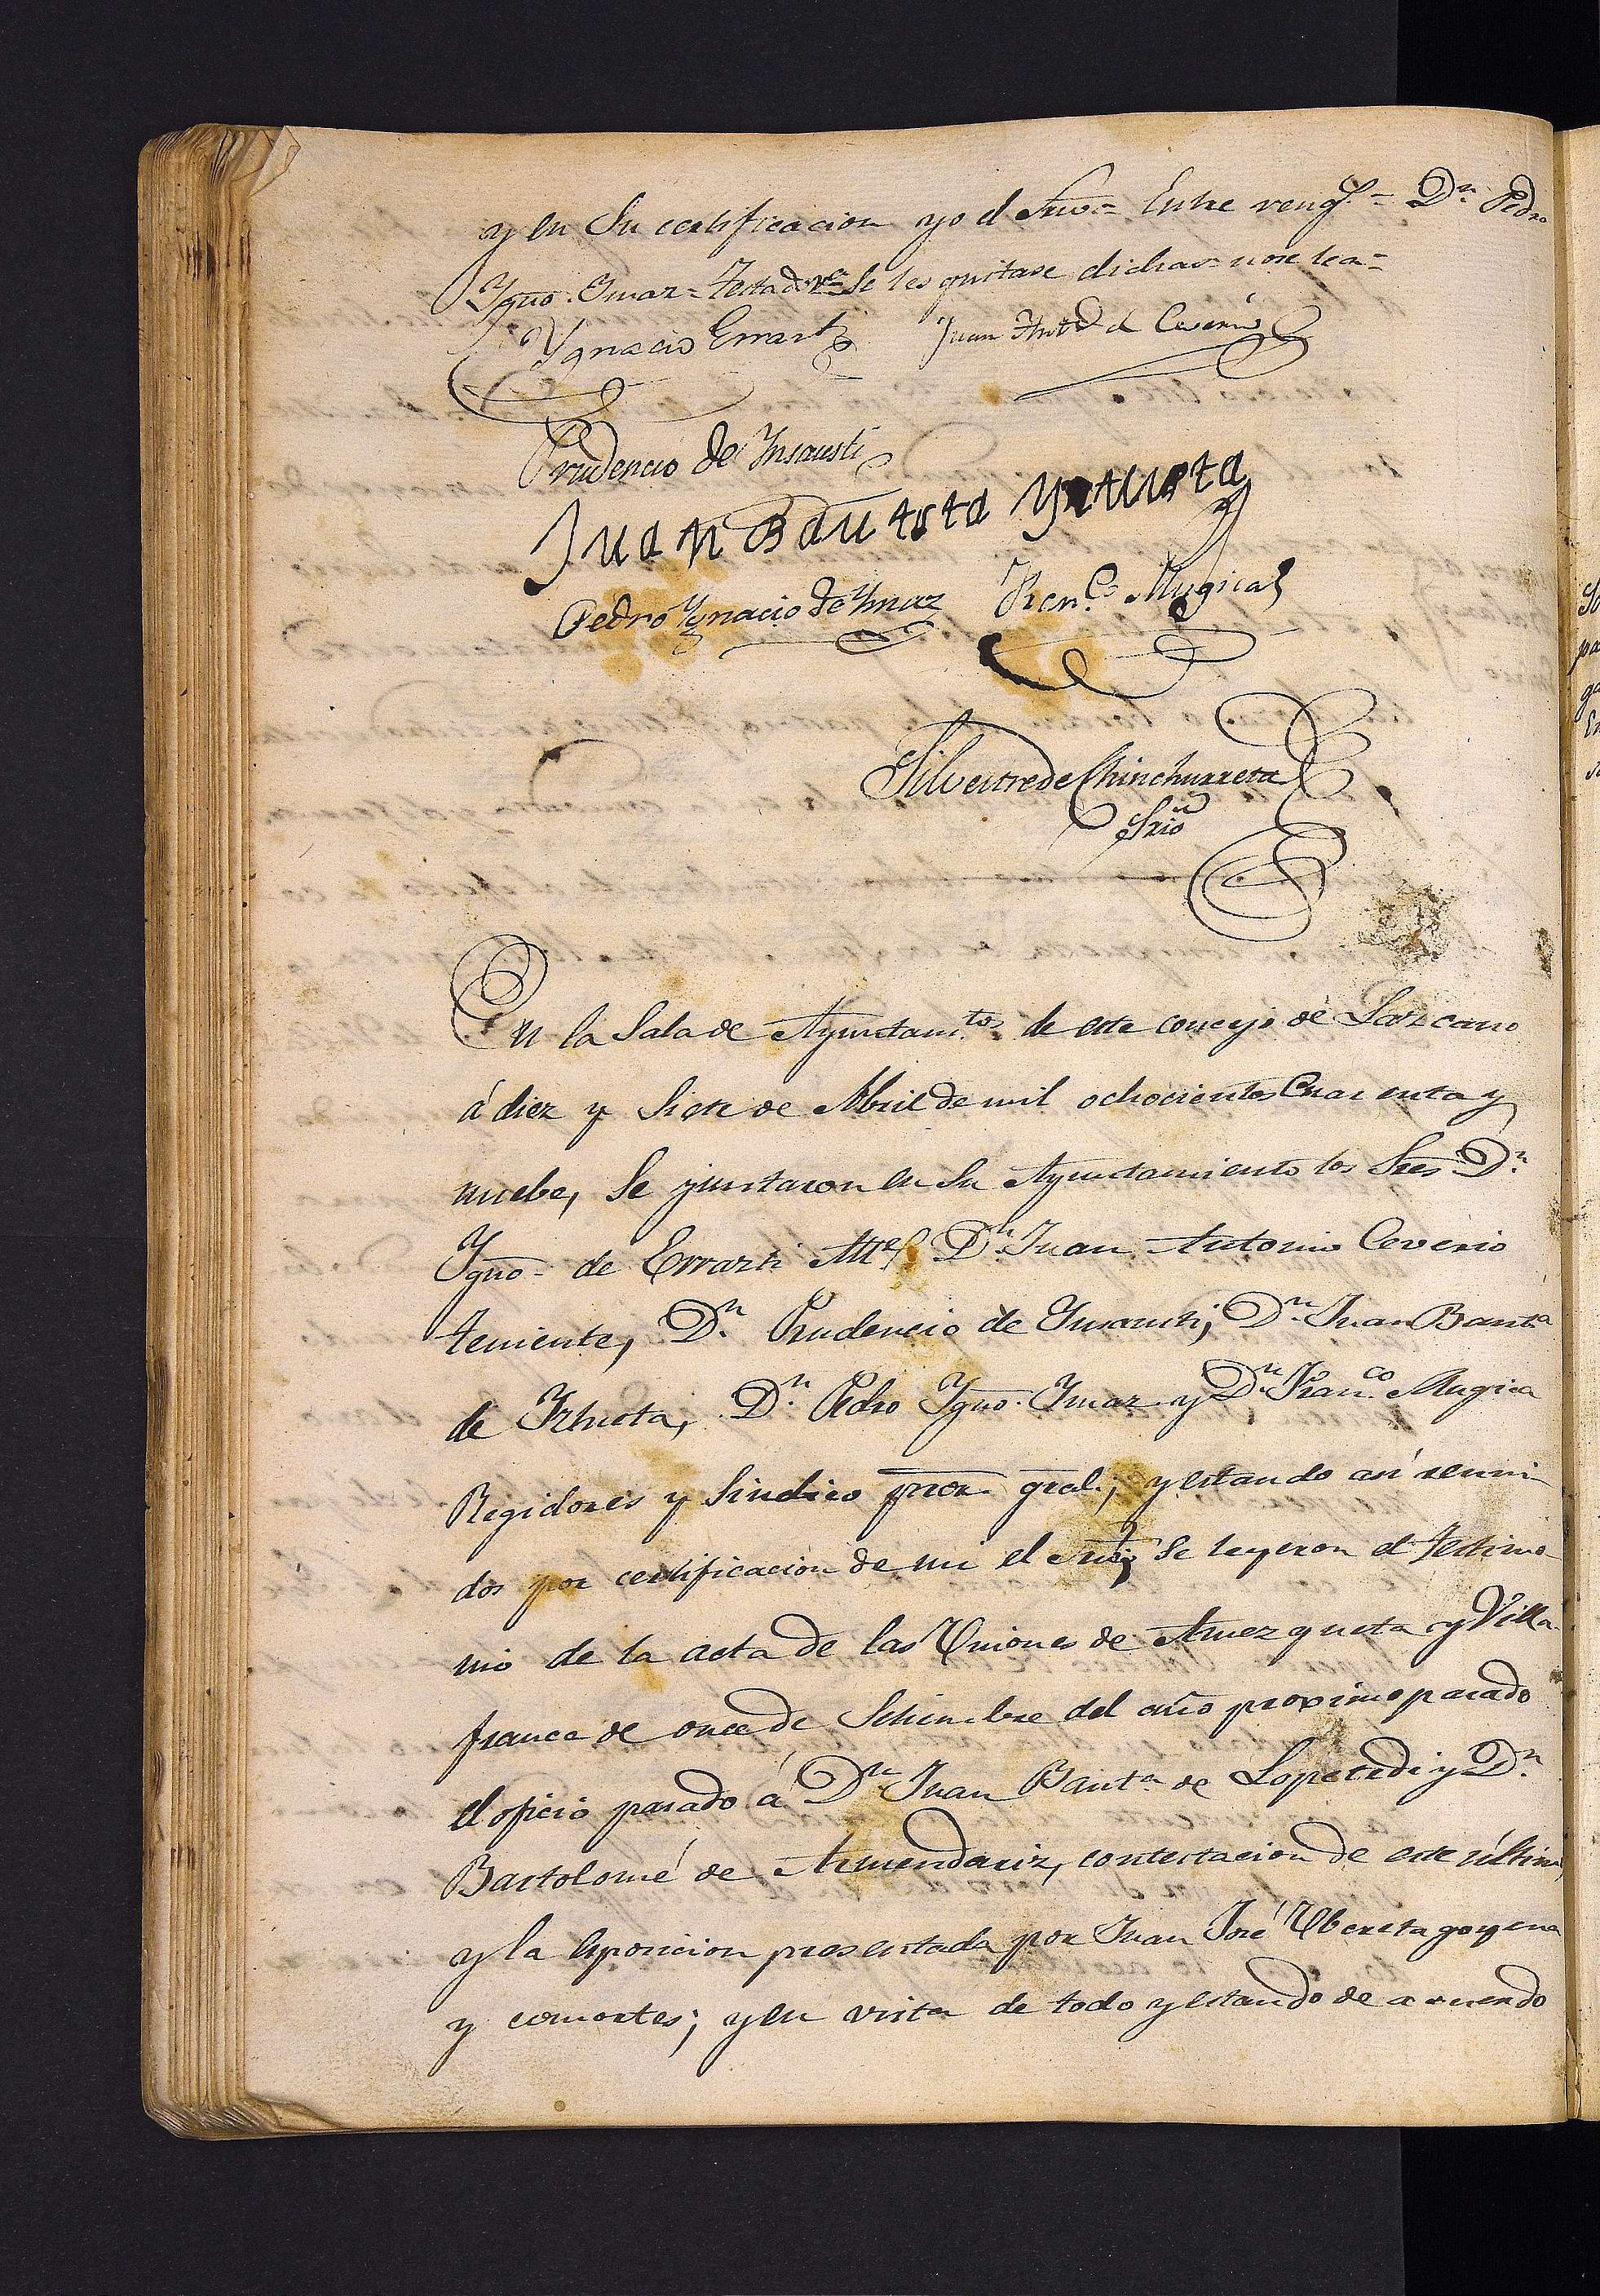 y en Su certificacion yo el Srio= Entre rengs= Dn Pedro
Ygno. Ymaz= Testado= Se les quitase dichas= no se lea=
Ygnacio Errarti Juan Anto de Ceverio
Prudencio de Ynsausti
Juan Bautista Yztueta
Pedro Ygnacio de Ymaz Franco Mugica
Silvestre de Chinchurreta
Srio
En la Sala de Ayuntamto de este concejo de Lazcano
á diez y Siete de Abril de mil ochocientos Cuarenta y
nuebe, Se juntaron en Su Ayuntamiento los Sres Dn
Ygno= de Errazti Alle Dn Juan Antonio Ceverio
teniente, Dn Prudencio de Ynsausti, Dn Juan Bauta
de Iztueta, Dn Pedro Ygno. Ymaz y Dn Franco Mugica
Regidores y Sindico pror gral; y estando así reuni-
dos por certificacion de mi el Srio Se leyeron el testimo-
nio de la acta de las Uniones de Amezqueta y Villa-
franca de once de Setiembre del año proximo pasado
el oficio pasado á Dn Juan Bauta de Lopetedi y Dn
Bartolomé de Armendariz, contestacion de este último,
y la esposicion presentada por Juan José Uberetagoyena
y consortes; y en vista de todo y estando de acuerdo